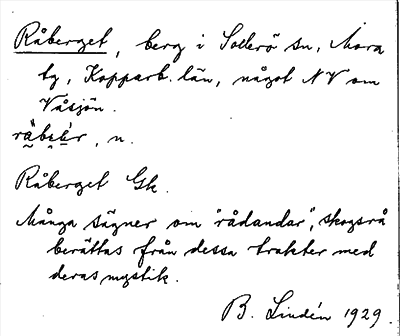 Råberget, berg i Sollerö sn, Mora
tg, Kopparb. län, något NV om
Våsjön.
n.
Råberget Gk.
Många sägner om "rådandar", skogsrå
berättas från dessa trakter med
deras mystik.
B. Lindén 1929.